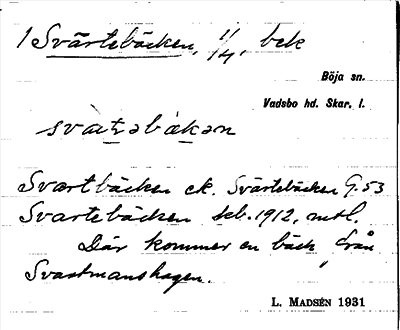 1 Svärtebäcken, 1/4, bek
Böja sn.
Vadsbo hd. Skar. l.
svart̠əbäk̠ən
Svartbäcken ek. Svärtebäcken G.53
Svartebäcken skb. 1912, mtl.
Där kommer en bäck från
Svartmanshagen.
L. MADSÉN 1931